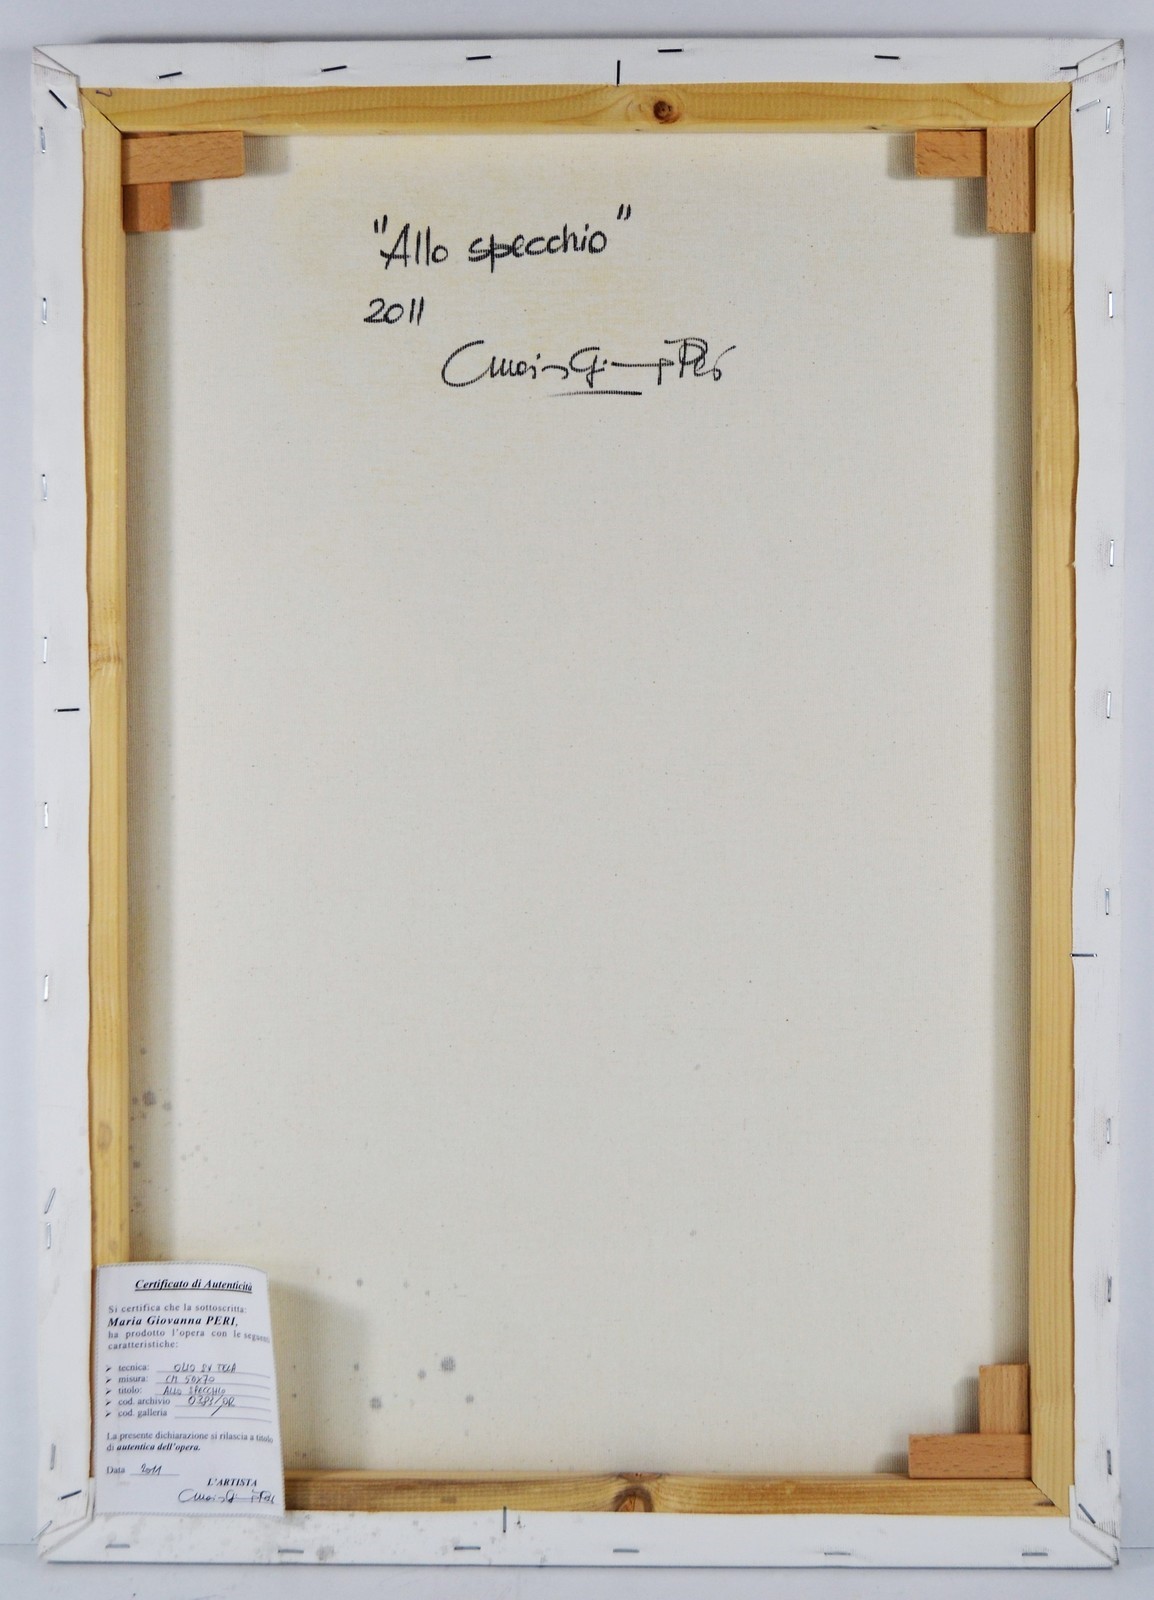 "Allo specchio"
2011
Certificato di Autenticità
Si certifica che la sottoscritta:
Maria Giovanna PERI,
ha prodotto l'opera con le seguenti
caratteristiche:
➤ tecnica: OLIO SU TELA
➤ misura: CM 50X70
➤ titolo: ALLO SPECCHIO
➤ cod. archivio
➤ cod. galleria /
La presente dichiarazione si rilascia a titolo
di autentica dell'opera.
Data 2011
L'ARTISTA